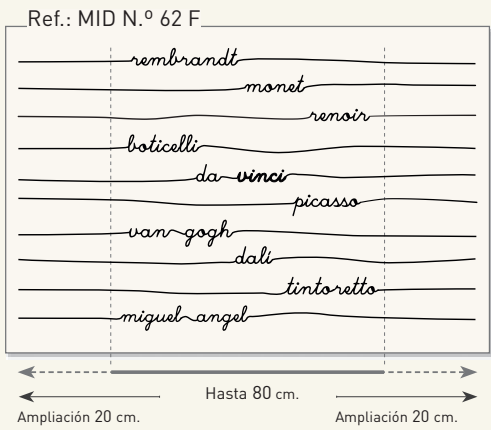 Ref.: MID N.º 62 F
rembrandt
monet
renoir
boticelli
da vinci
picasso
van gogh
dalí
tintoretto
miguel angel
Hasta 80 cm.
Ampliación 20 cm. Ampliación 20 cm.